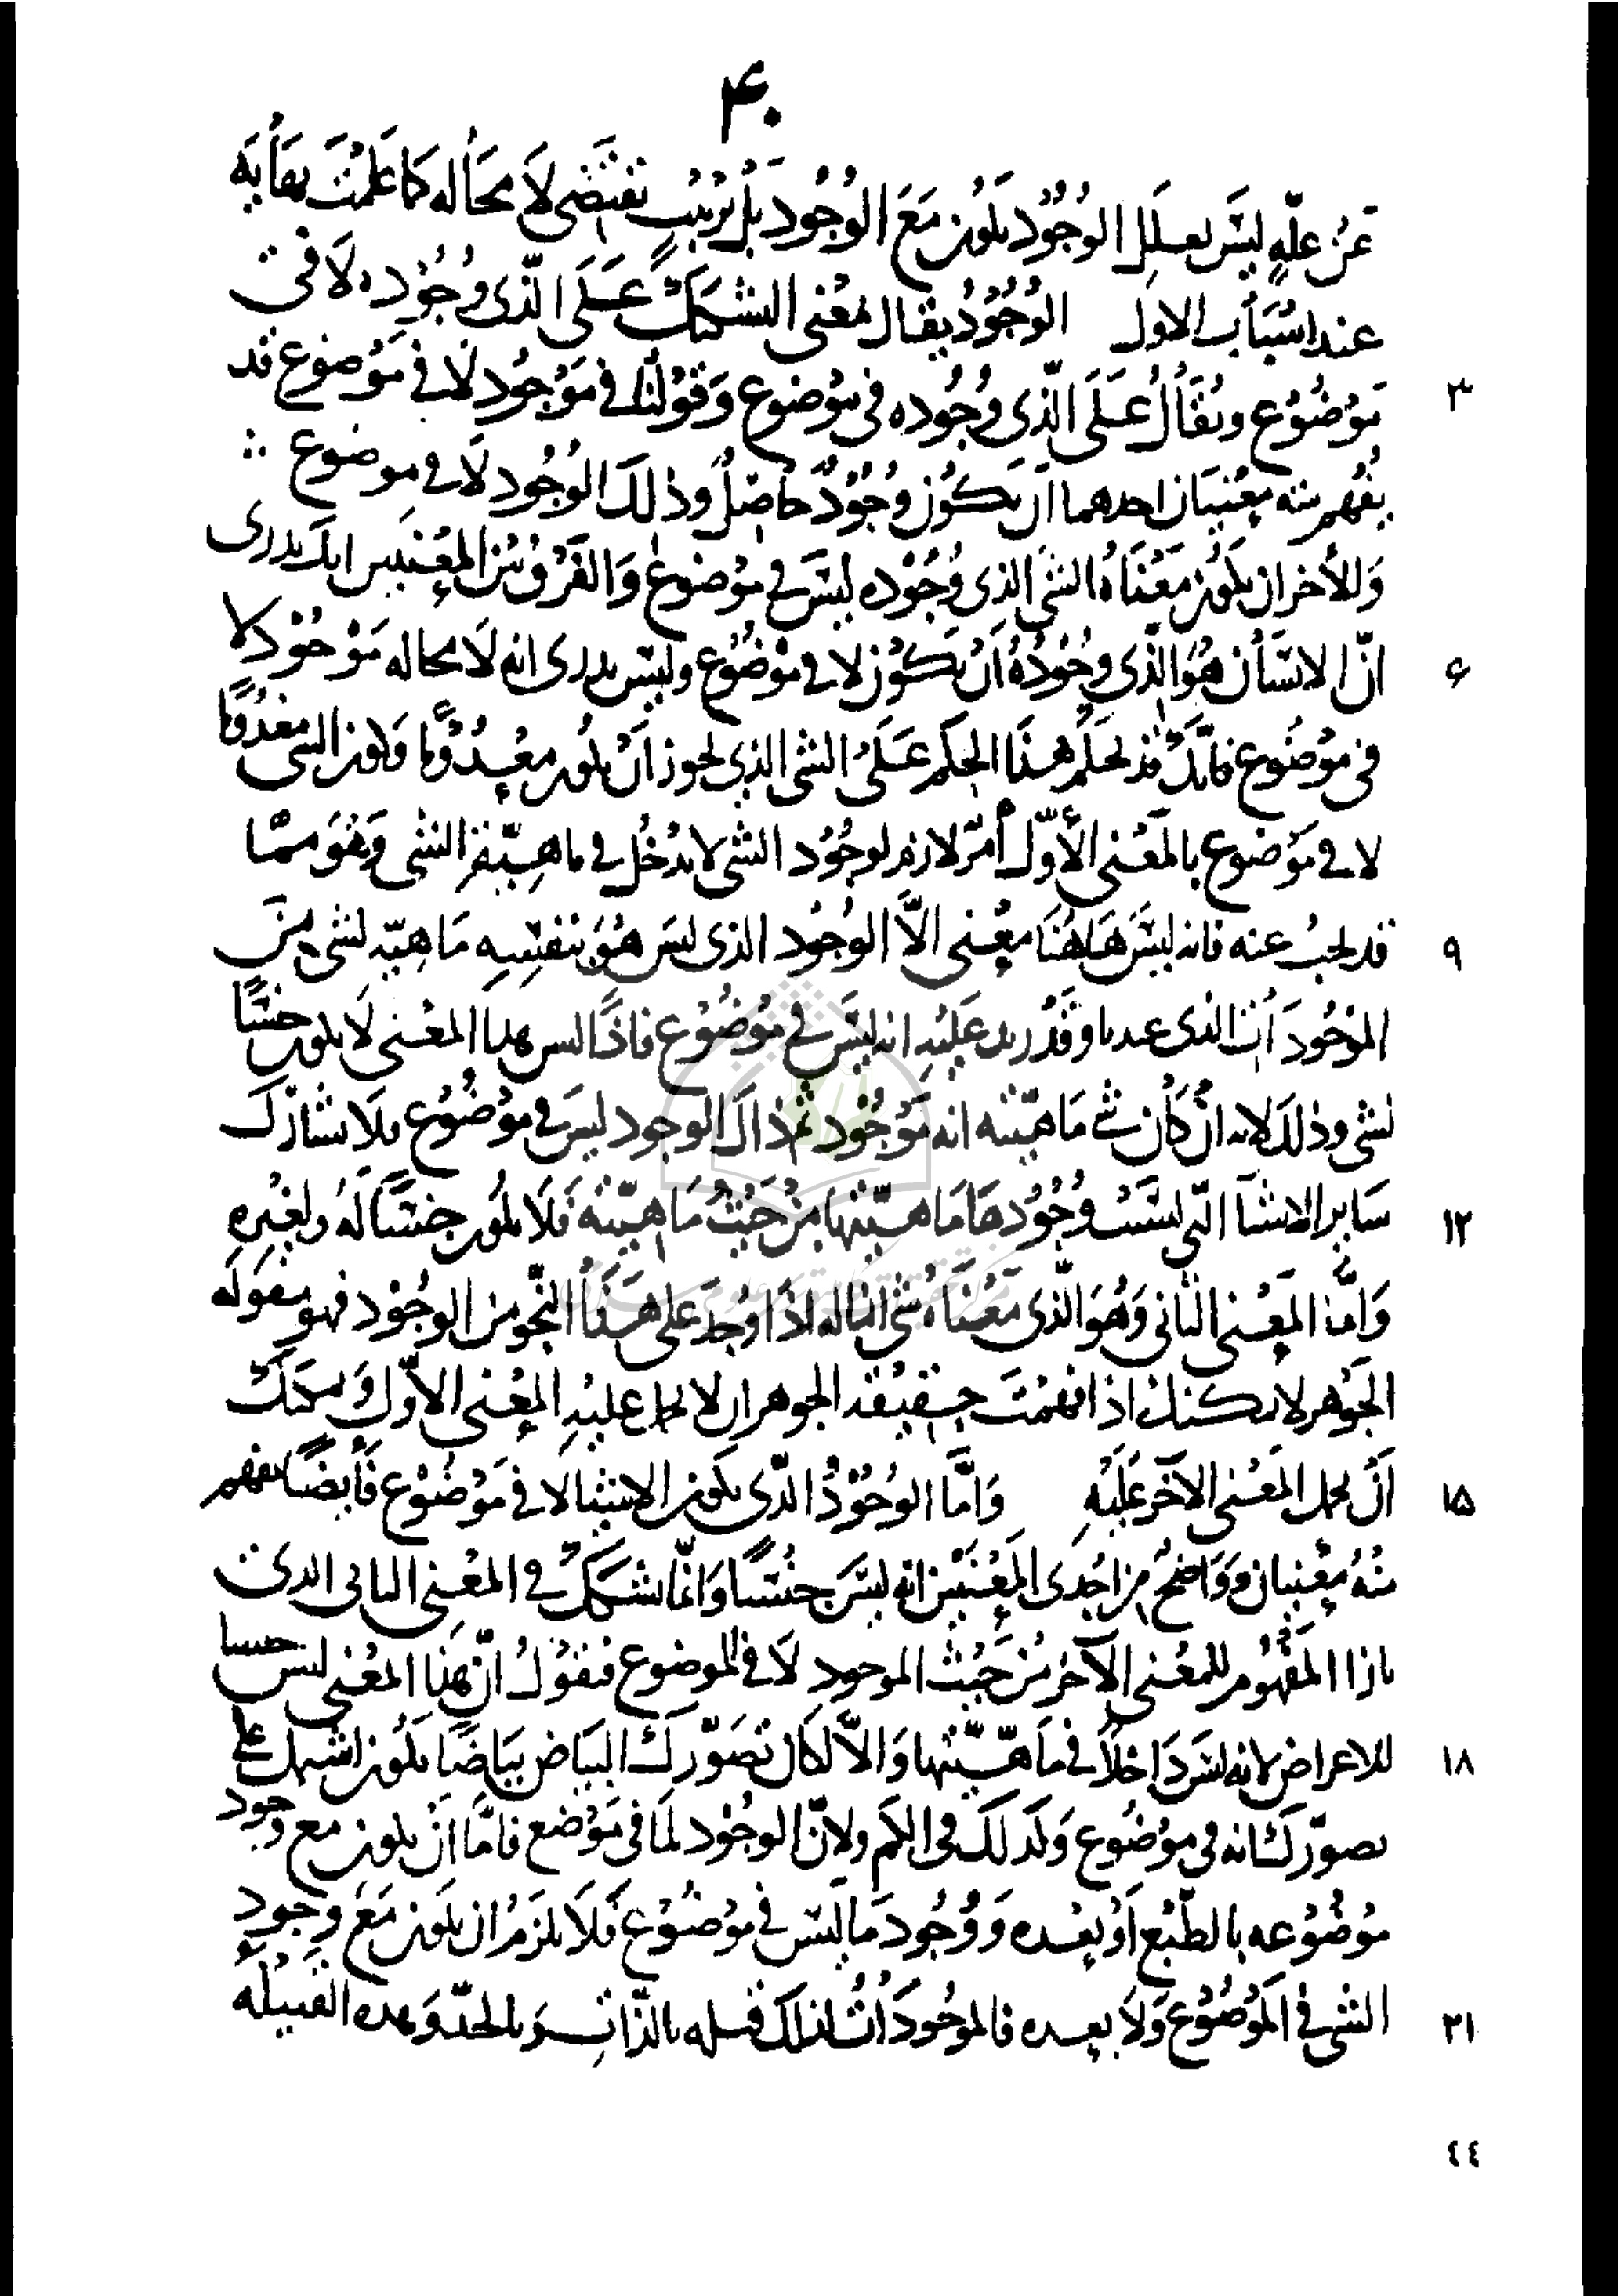 ۴۰
عن علّة ليس بعلل الوجود يكون مع الوجود بل ترتيب تقتضى لا محاله كما علمت نهايه
عند اسباب الاول الوجود يقال لمعنى التشكك على الّذى وجوده لا فى
موضوع ويقال على الّذى وجوده فى موضوع وقولنا فى موجود لا فى موضوع قد
يفهم منه معنيان احدهما ان يكون وجودٌ حاصلٌ وذلك الوجود لا فى موضوع
وللأخر ان يكون معناه الشى الذى وجوده ليس فى موضوع والفرق بين المعنيين انك تدرى
انّ الانسان هو الّذى وجوده أن يكون لا فى موضوع وليس تدرى انه لا محاله موجود لا
فى موضوع فانك قد تحكم هذا الحكم على الشى الذى يجوز ان يكون معدومًا وكون الشى معدومًا
لا فى موضوع بالمعنى الأوّل أمرٌ لازم لوجود الشى لا يدخل فى ماهيّة الشى وهو مما
قد يجب عنه فانه ليس هاهنا معنى الّا الوجود الذى ليس هو بنفسه ماهيّه لشى من
الموجودات الذى عندنا وقد زيد عليه انه ليس فى موضوع فاذًا ليس هذا المعنى لا يكون جنسًا
لشى وذلك لانه ان كان شى ماهيّته انه موجود ثم ذاك الوجود ليس فى موضوع فلا تشارك
ساير الاشيآ الّتى ليست وجودها ماهيّتها من حيث ماهيّته فلا يكون جنسًا له ولغيره
وامّا المعنى الثانى وهو الّذى معناه شى انما له اذا وجد على هذا النّحو من الوجود فهو مقوله
الجوهر لا يمكنك اذا فهمت حقيقة الجوهر ان لا تحمل عليه المعنى الاوّل ويمكنك
أن تحمل المعنى الآخر عليه وامّا الوجود الّذى يكون لاشيا لا فى موضوع فأيضًا يفهم
منه معنيان وواضح من احدى المعنيين انه ليس جنسًا وانّما شكك فى المعنى الثانى الذى
بازا المفهوم للمعنى الآخر من حيث الموجود لا فى الموضوع فنقول انّ هذا المعنى ليس جنسا
للاعراض لانه ليس داخلًا فى ماهيّتها والّا لكان تصوّرك البياض بياضًا يكون اشتمل على
تصوّرك انه فى موضوع وكذلك فى الكم ولانّ الوجود لما فى موضع فامّا ان يكون مع وجود
موضوعه بالطّبع أو بعده ووجود ما ليس فى موضوع فلا يلزم ان يكون مع وجود
الشى فى الموضوع ولا بعده فالموجودات لذلك قبله بالذّات وبالحدّ وهذه القبيله
٣
۶
٩
١٢
١۵
١٨
٢١
٤٤